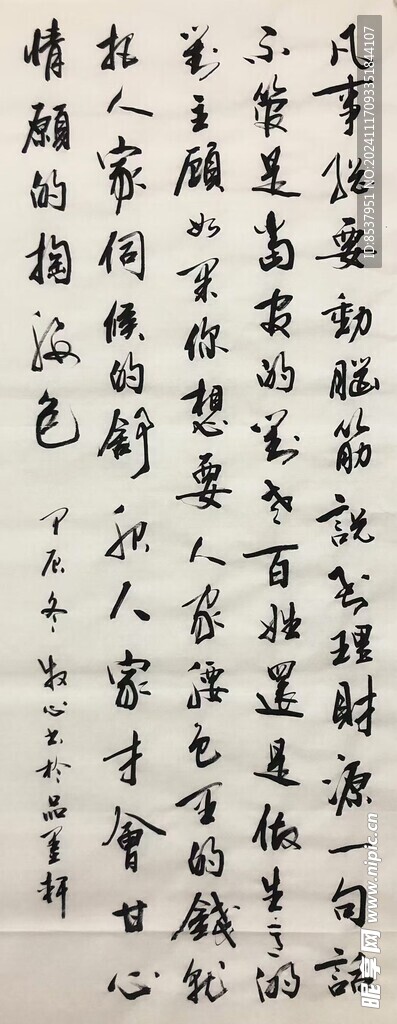 凡事總要動腦筋說到理財源一句話
不管是當官的對老百姓還是做生意的
對主顧如果你想要人家腰包里的錢就
把人家伺候的舒服人家才會甘心
情願的掏腰包
甲辰冬牧心書於品墨軒
ID:8537951 NO:20241117093351844107
昵享网 www.nipic.cn